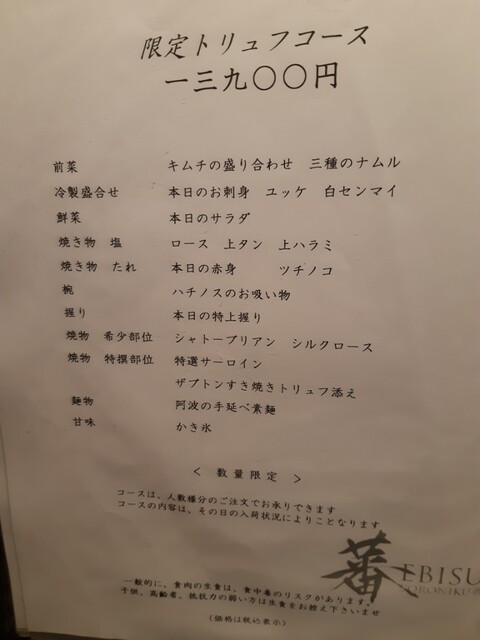 限定トリュフコース
一三九〇〇円
前菜 キムチの盛り合わせ 三種のナムル
冷製盛合せ 本日のお刺身 ユッケ 白センマイ
鮮菜 本日のサラダ
焼き物 塩 ロース 上タン 上ハラミ
焼き物 たれ 本日の赤身 ツチノコ
椀 ハチノスのお吸い物
握り 本日の特上握り
焼物 希少部位 シャトーブリアン シルクロース
焼物 特撰部位 特選サーロイン
ザブトンすき焼きトリュフ添え
麺物 阿波の手延べ素麺
甘味 かき氷
< 数量限定 >
コースは、人数様分のご注文でお承りできます
コースの内容は、その日の入荷状況によりことなります
蕃 EBISU
YORONIKU
一般的に、食肉の生食は、食中毒のリスクがあります。
子供、高齢者、抵抗力の弱い方は生食をお控え下さいませ
(価格は税込表示)